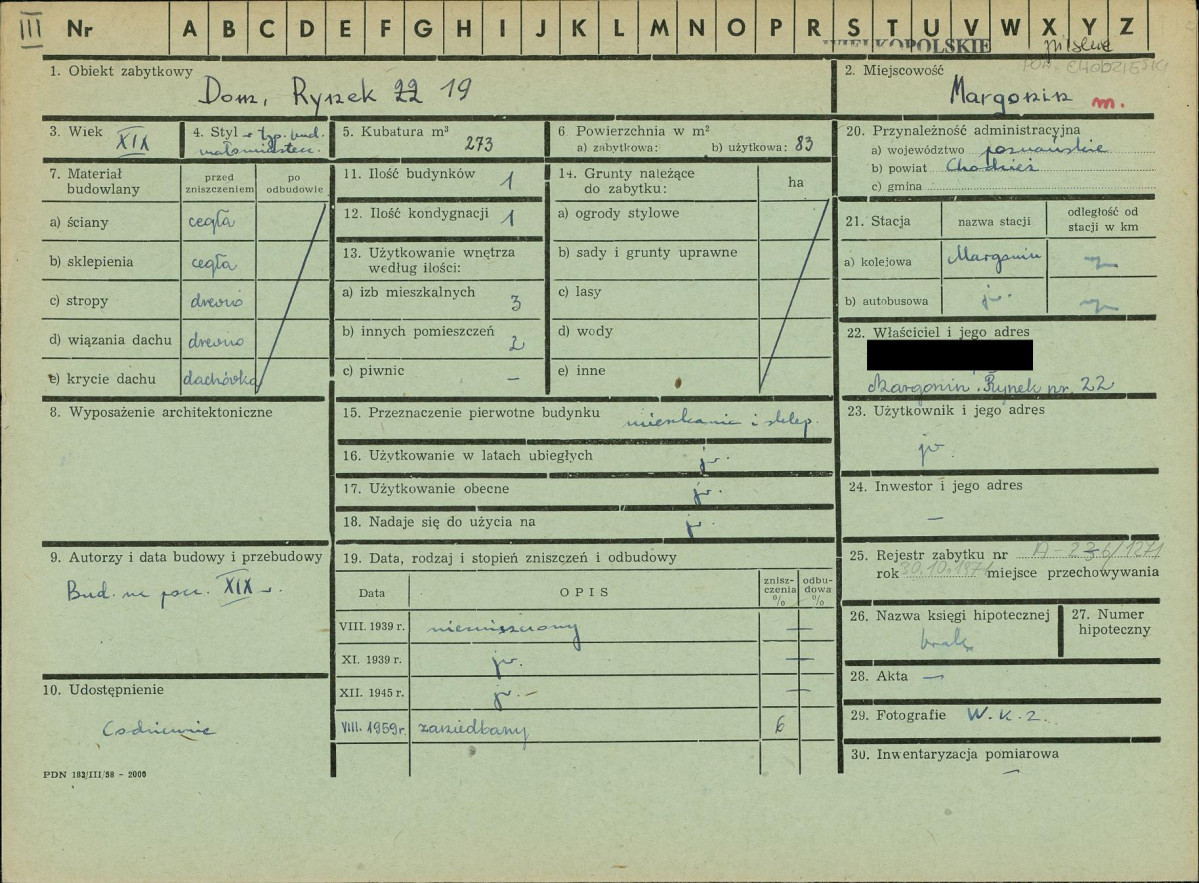 III Nr A B C D E F G H I J K L M N O P R S T U V W X Y Z
WIELKOPOLSKIE
pilskie
pow. CHODZIESKI
1. Obiekt zabytkowy
Dom, Rynek 22 19
2. Miejscowość
Margonin m.
3. Wiek XIX
4. Styl typ. bud.
małomiasteczk.
5. Kubatura m³
273
6 Powierzchnia w m²
a) zabytkowa: b) użytkowa: 83
20. Przynależność administracyjna
a) województwo poznańskie
b) powiat Chodzież
c) gmina
7. Materiał budowlany
przed zniszczeniem
po odbudowie
a) ściany cegła
b) sklepienia cegła
c) stropy drewno
d) wiązania dachu drewno
e) krycie dachu dachówka
11. Ilość budynków 1
12. Ilość kondygnacji 1
13. Użytkowanie wnętrza
według ilości:
a) izb mieszkalnych 3
b) innych pomieszczeń 2
c) piwnic —
14. Grunty należące
do zabytku:
ha
a) ogrody stylowe
b) sady i grunty uprawne
c) lasy
d) wody
e) inne
21. Stacja
nazwa stacji
odległość od
stacji w km
a) kolejowa Margonin
b) autobusowa jw.
22. Właściciel i jego adres
Margonin, Rynek nr. 22
8. Wyposażenie architektoniczne
15. Przeznaczenie pierwotne budynku mieszkanie i sklep.
16. Użytkowanie w latach ubiegłych jw.
17. Użytkowanie obecne jw.
18. Nadaje się do użycia na jw.
23. Użytkownik i jego adres
jw.
24. Inwestor i jego adres
—
9. Autorzy i data budowy i przebudowy
Bud. na pocz. XIX w.
19. Data, rodzaj i stopień zniszczeń i odbudowy
Data
OPIS
znisz-
czenia
%
odbu-
dowa
%
VIII. 1939 r. niezniszczony —
XI. 1939 r. jw. —
XII. 1945 r. jw. — —
VIII. 1959 r. zaniedbany 6
25. Rejestr zabytku nr A-236/1271
rok 30.10.1971 miejsce przechowywania
26. Nazwa księgi hipotecznej
brak
27. Numer
hipoteczny
28. Akta —
29. Fotografie W.K.Z.
30. Inwentaryzacja pomiarowa
—
10. Udostępnienie
Codziennie
PDN 183/III/58 - 2000